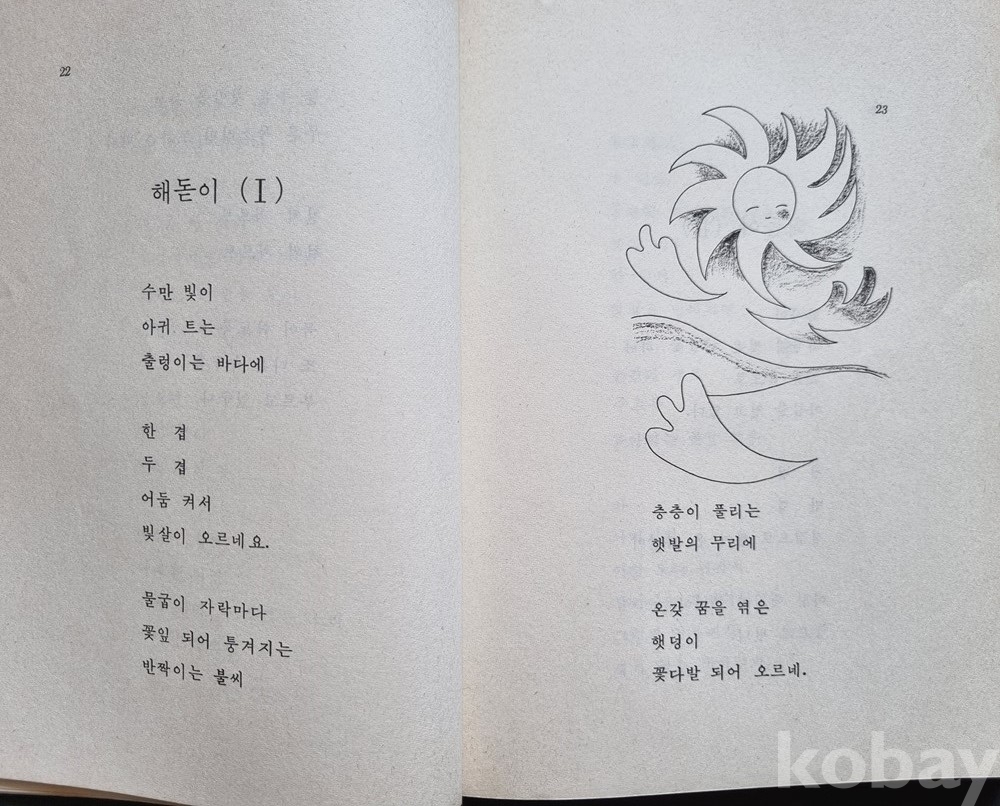 22
해돋이 (I)
수만 빛이
아귀 트는
출렁이는 바다에
한 겹
두 겹
어둠 켜서
빛살이 오르네요.
물굽이 자락마다
꽃잎 되어 퉁겨지는
반짝이는 불씨
23
층층이 풀리는
햇발의 무리에
온갖 꿈을 엮은
햇덩이
꽃다발 되어 오르네.
kobay